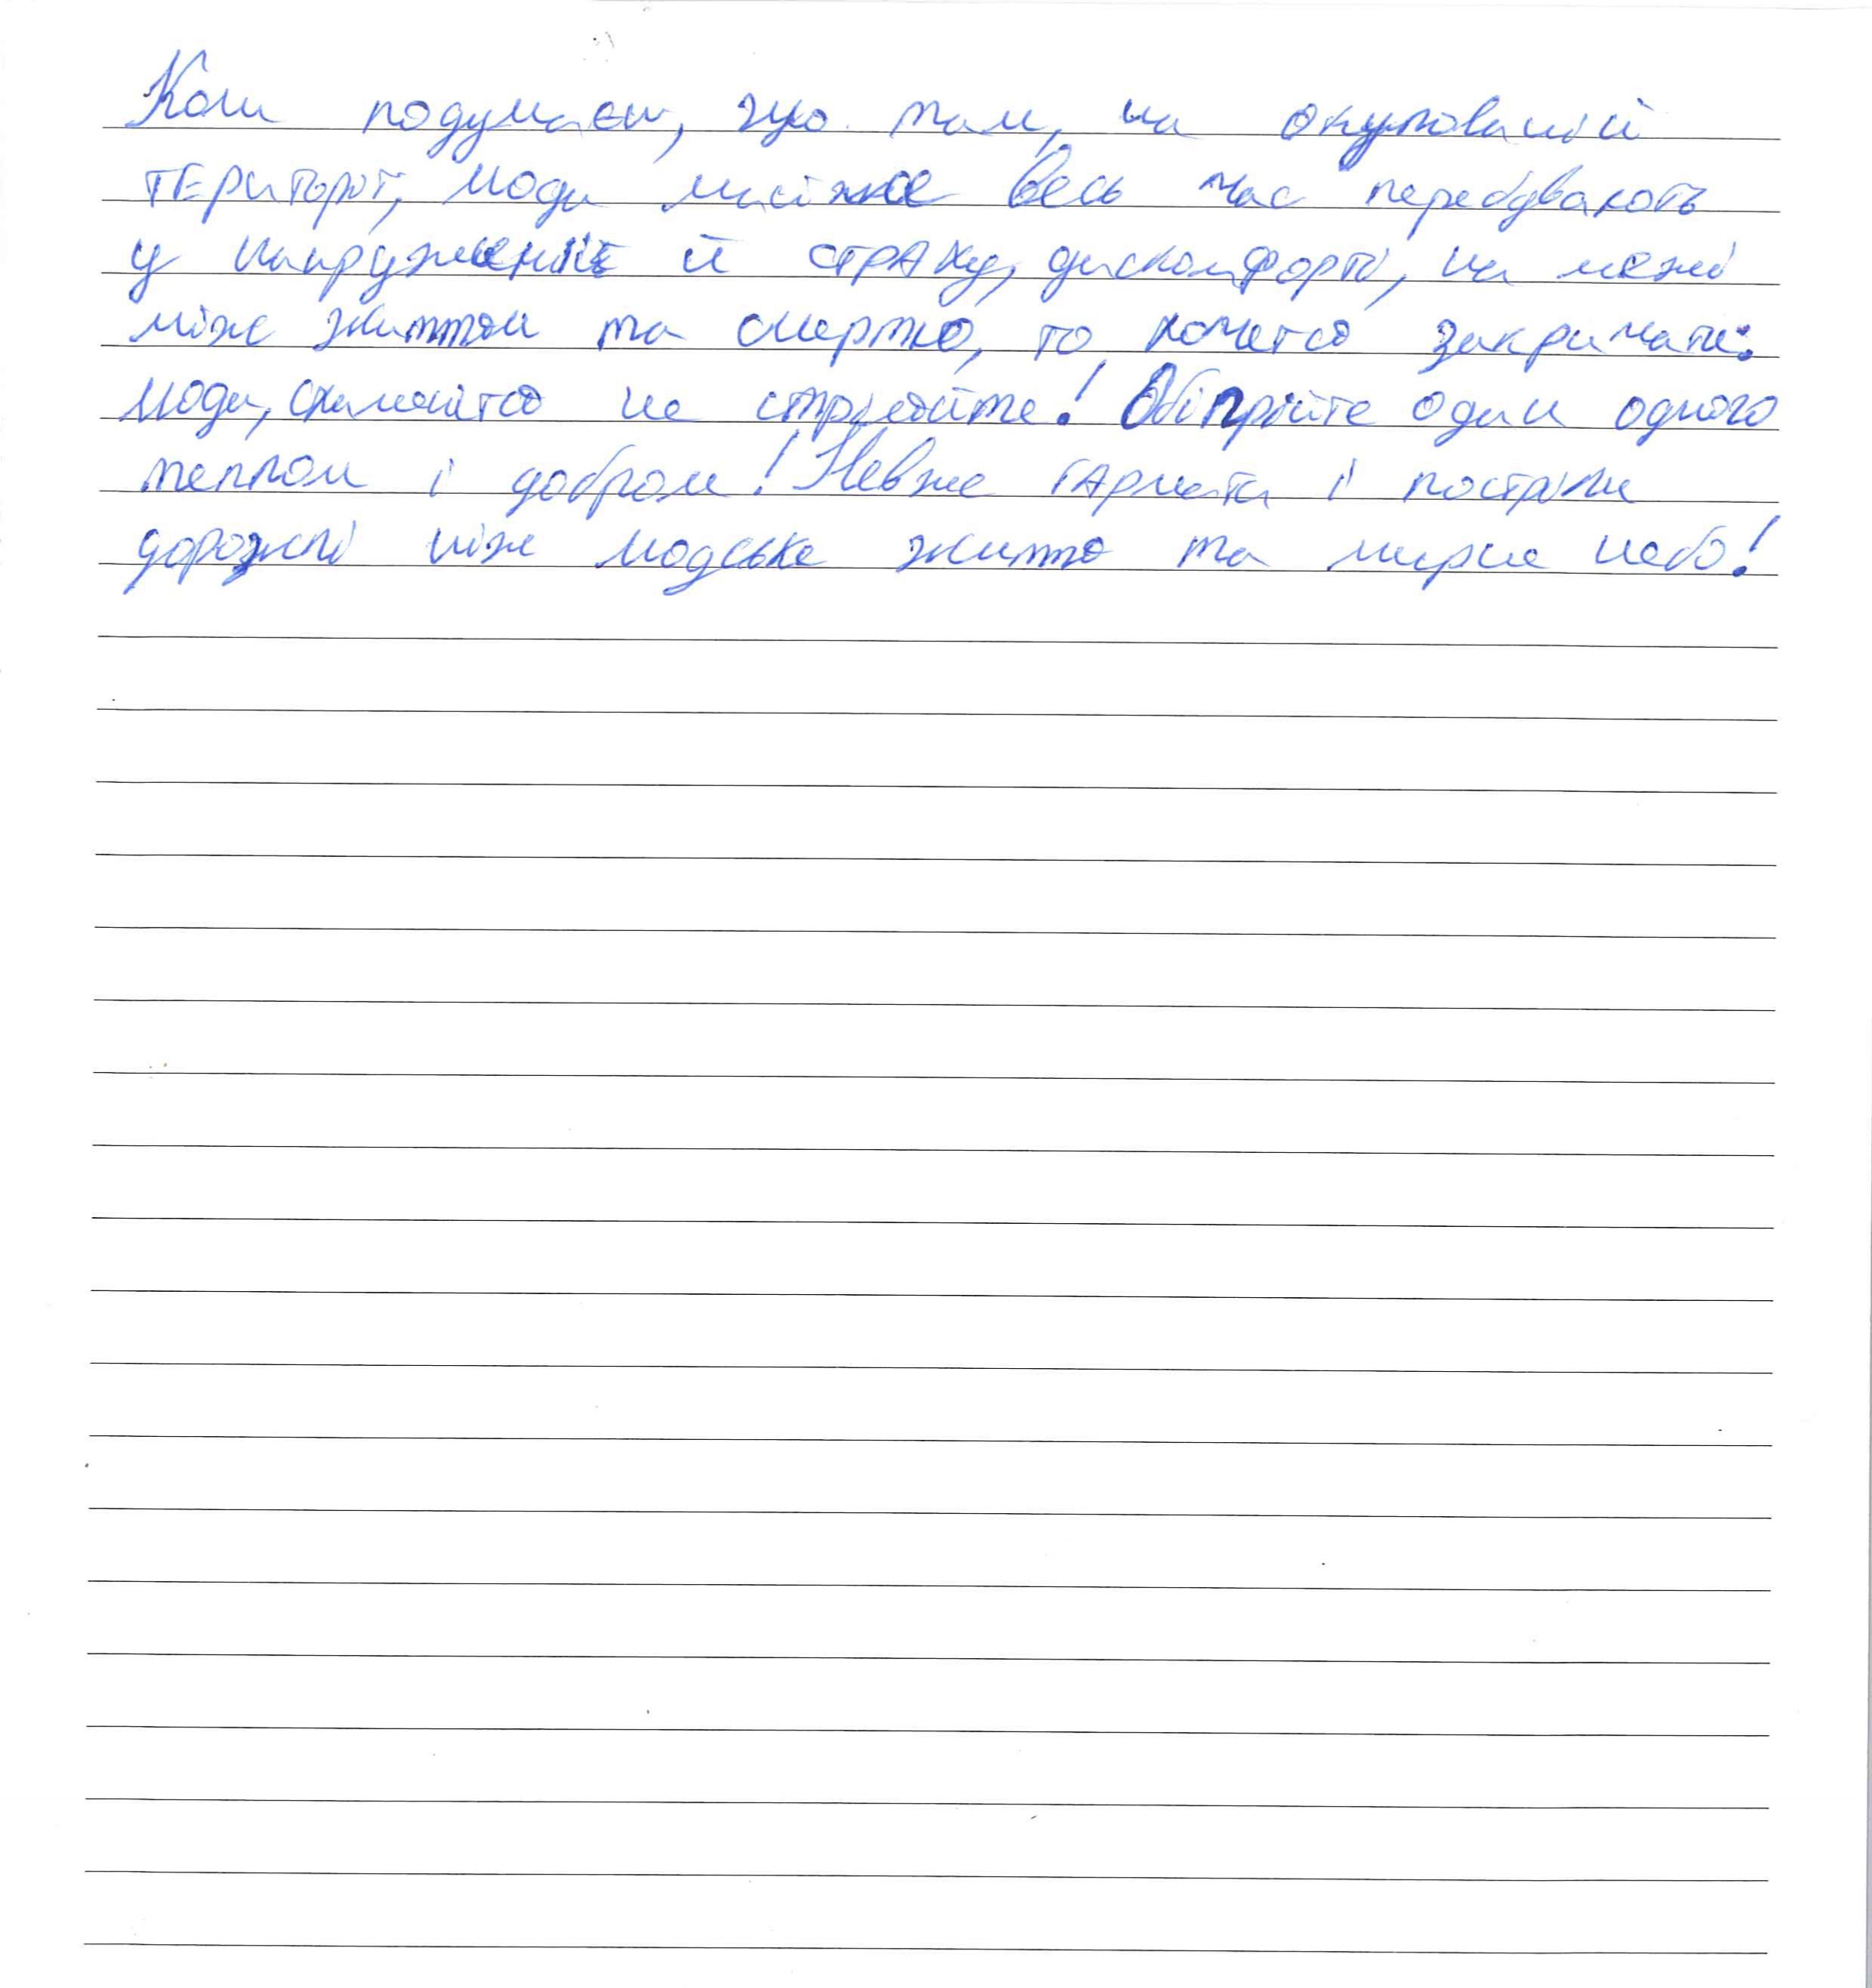 Коли подумаєш, що там, на окупованій
території, люди майже весь час перебувають
у напруженні й страху, дискомфорті, на межі
між життям та смертю, то хочеться закричати:
люди, схаменіться не стріляйте! Обігрійте один одного
теплом і добром! Невже гармати і постріли
дорожчі ніж людське життя та мирне небо!